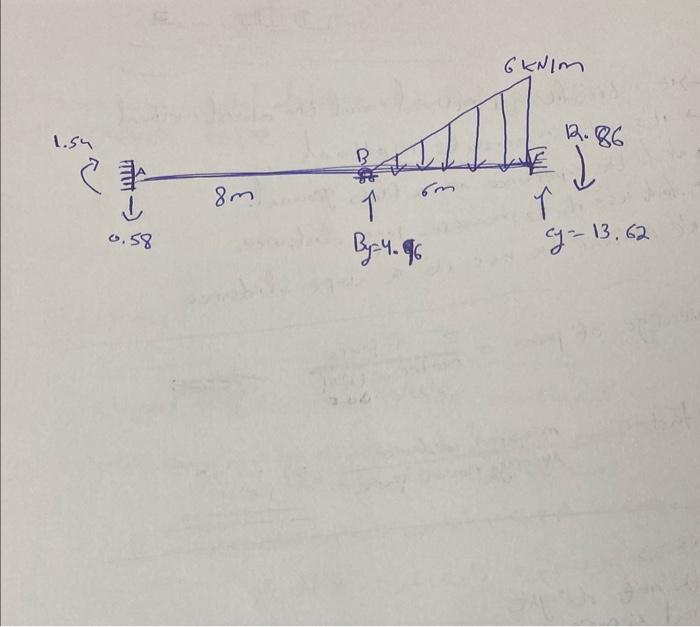 6 kN/m
1.54
A
B
C
12.86
8m
6m
0.58
By=4.96
Cy=13.62